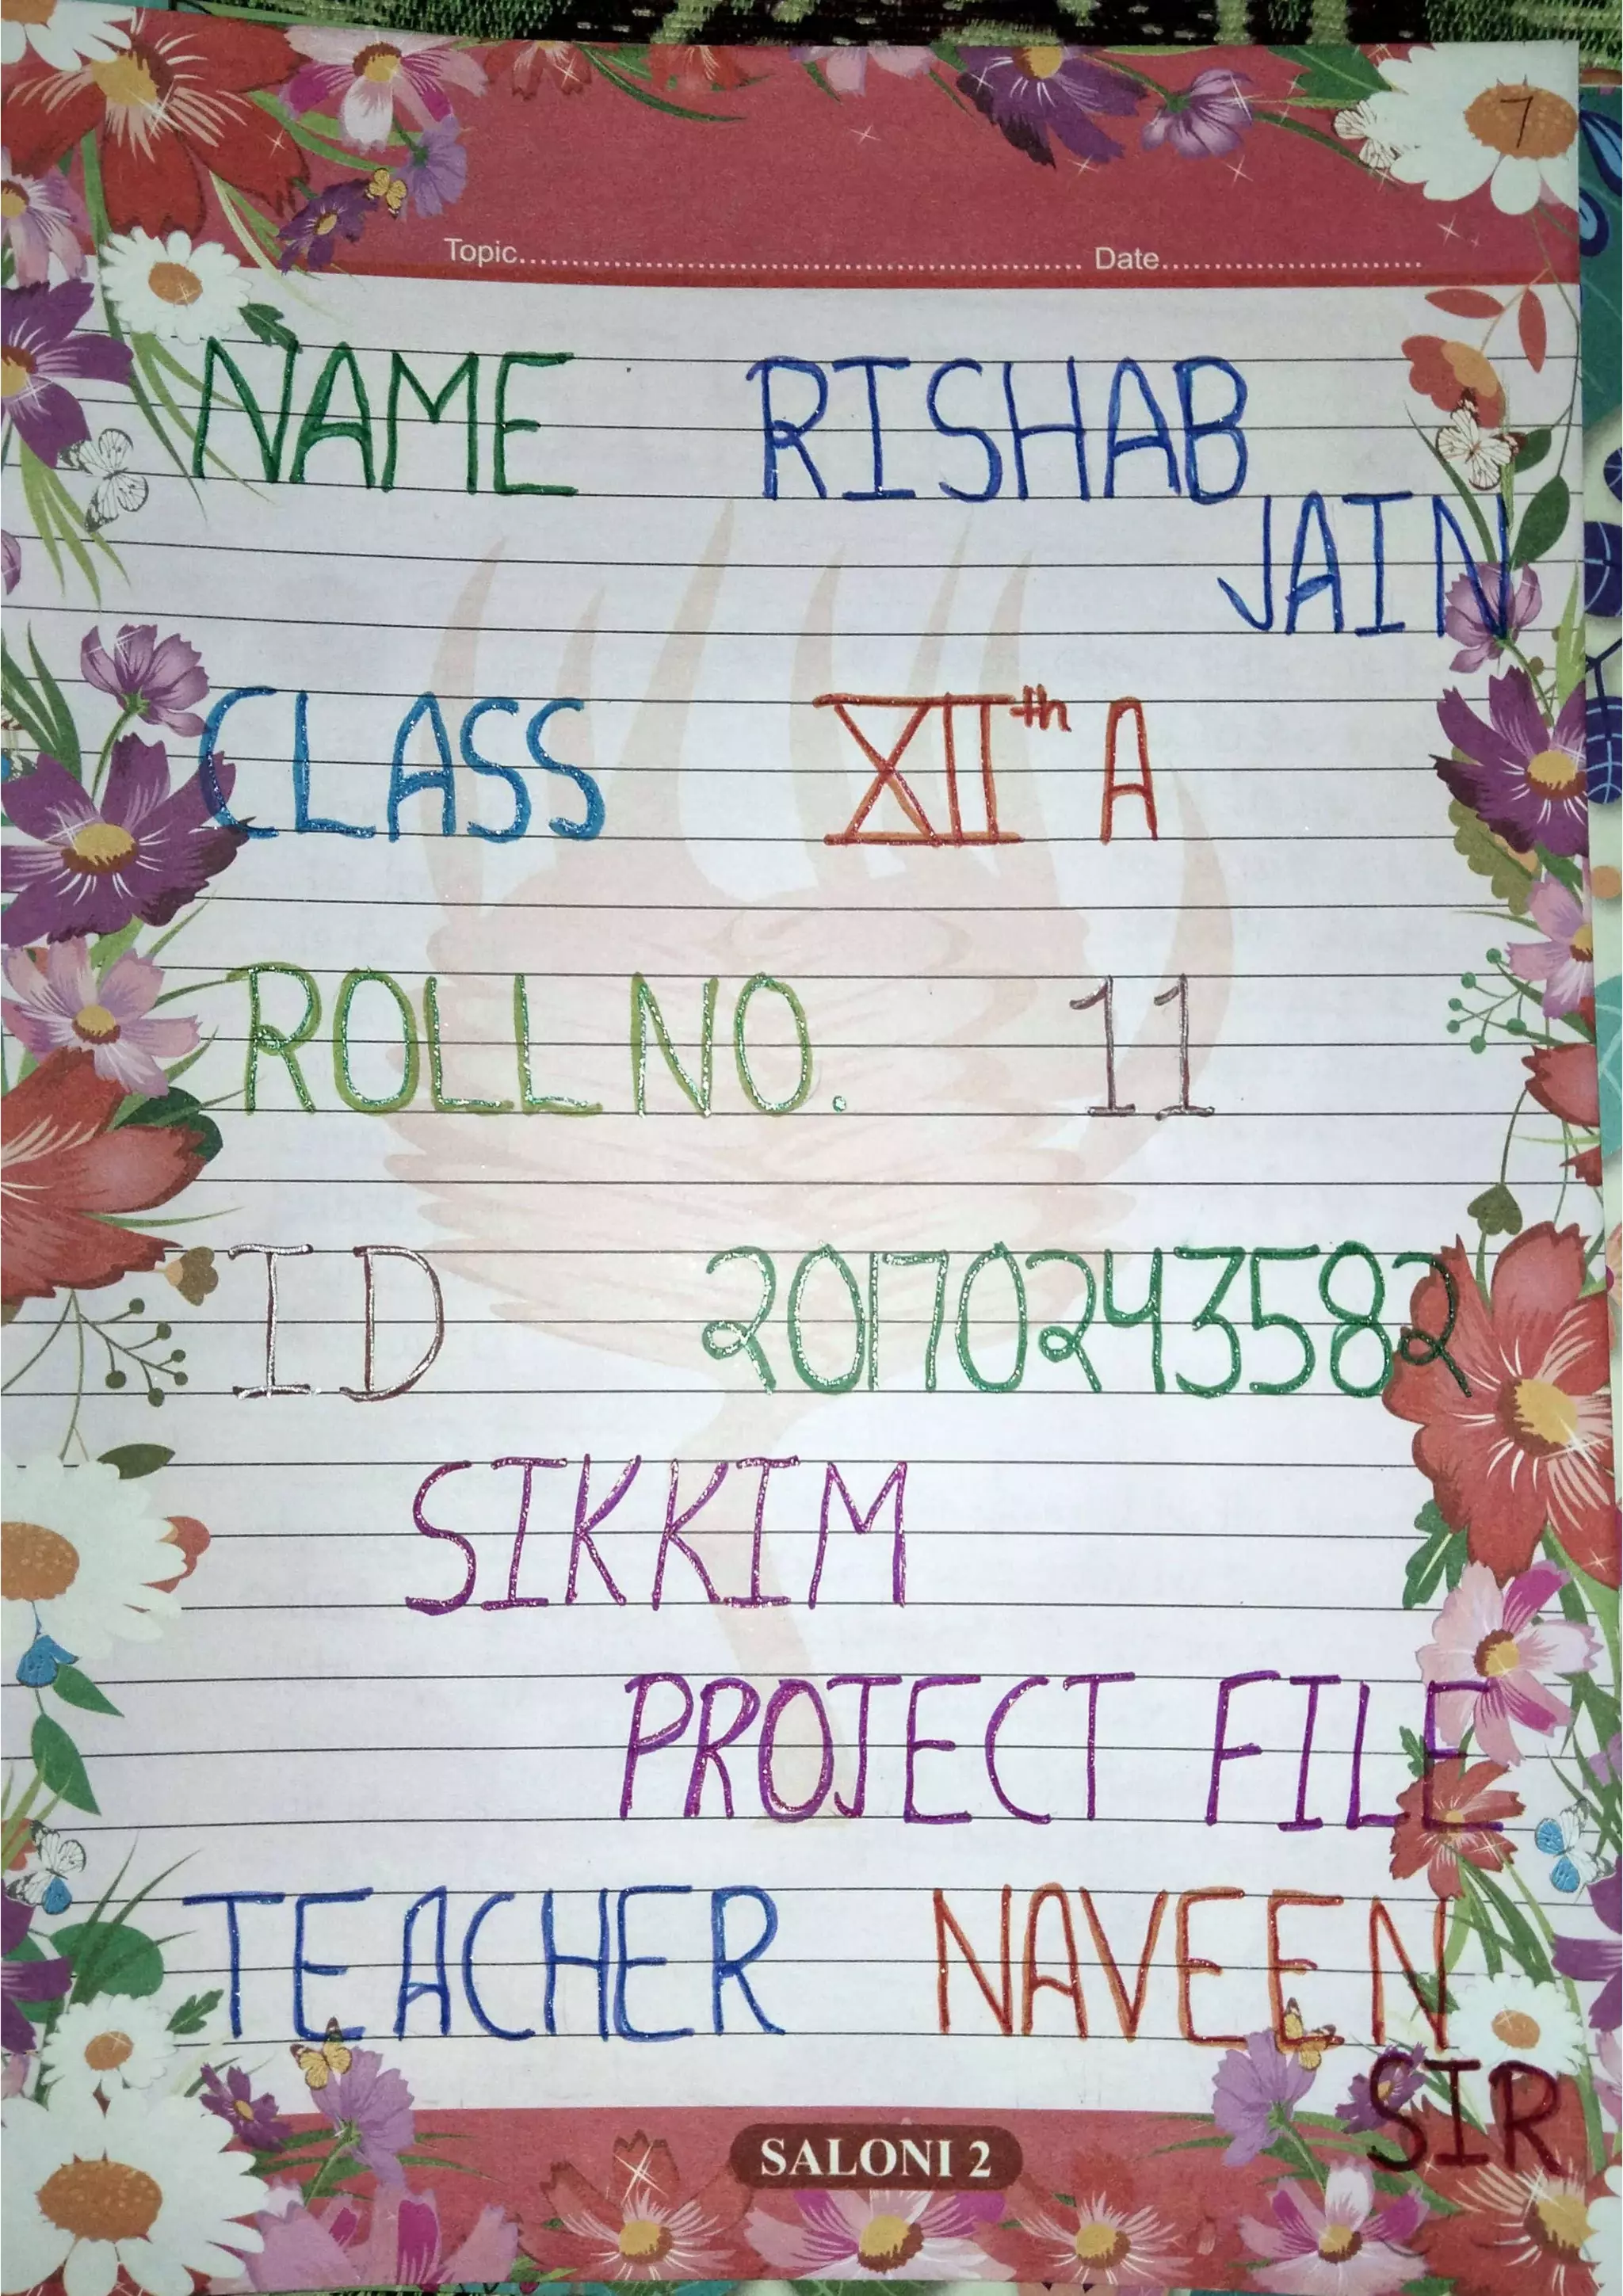 7
Topic.......................................................................... Date..................................
NAME RISHAB
JAIN
CLASS XIIth A
ROLL NO. 11
ID 20170243582
SIKKIM
PROJECT FILE
TEACHER NAVEEN
SIR
SALONI 2